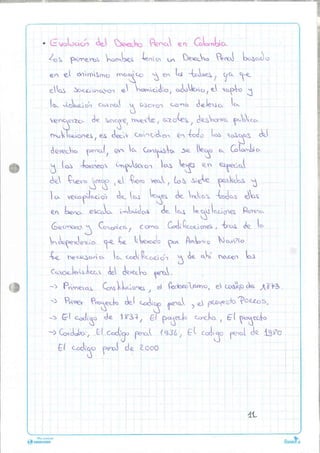 • Evolución del Derecho Penal en Colombia
Los primeros hombres tenian un Derecho Penal basado
en el animismo magico y en los tabues, ya que
ellos sancionaron el homicidio, adulterio, el rapto y
la violación carnal y usaron como defensa la
venganza de sangre, muerte, azotes, deshonra publica
mutilaciones, es decir coincidian en todo los rasgos del
derecho penal, con la conquista se llego a Colombia
y las impulsaron las leyes en especial
del fuero juzgo, el fuero real, las siete partidas y
la recopilación de las leyes de Indias todas ellas
en buena escala imbuidas de las legislaciones Romana
Germana y Canonica, como Codificaciones. tras de la
Independencia que fue liberada por Antonio Nariño
fue necesaria la codificación y de ahi nacen las
Caracteristicas del derecho penal.
-> Primeras Constituciones, el , el codigo de 1873.
-> Primer Proyecto del codigo penal, el proyecto Pocaos,
-> El codigo de 1837, El proyecto concha, El proyecto
-> , El codigo penal 1936, El codigo penal de 1980
El codigo penal de 2000
11